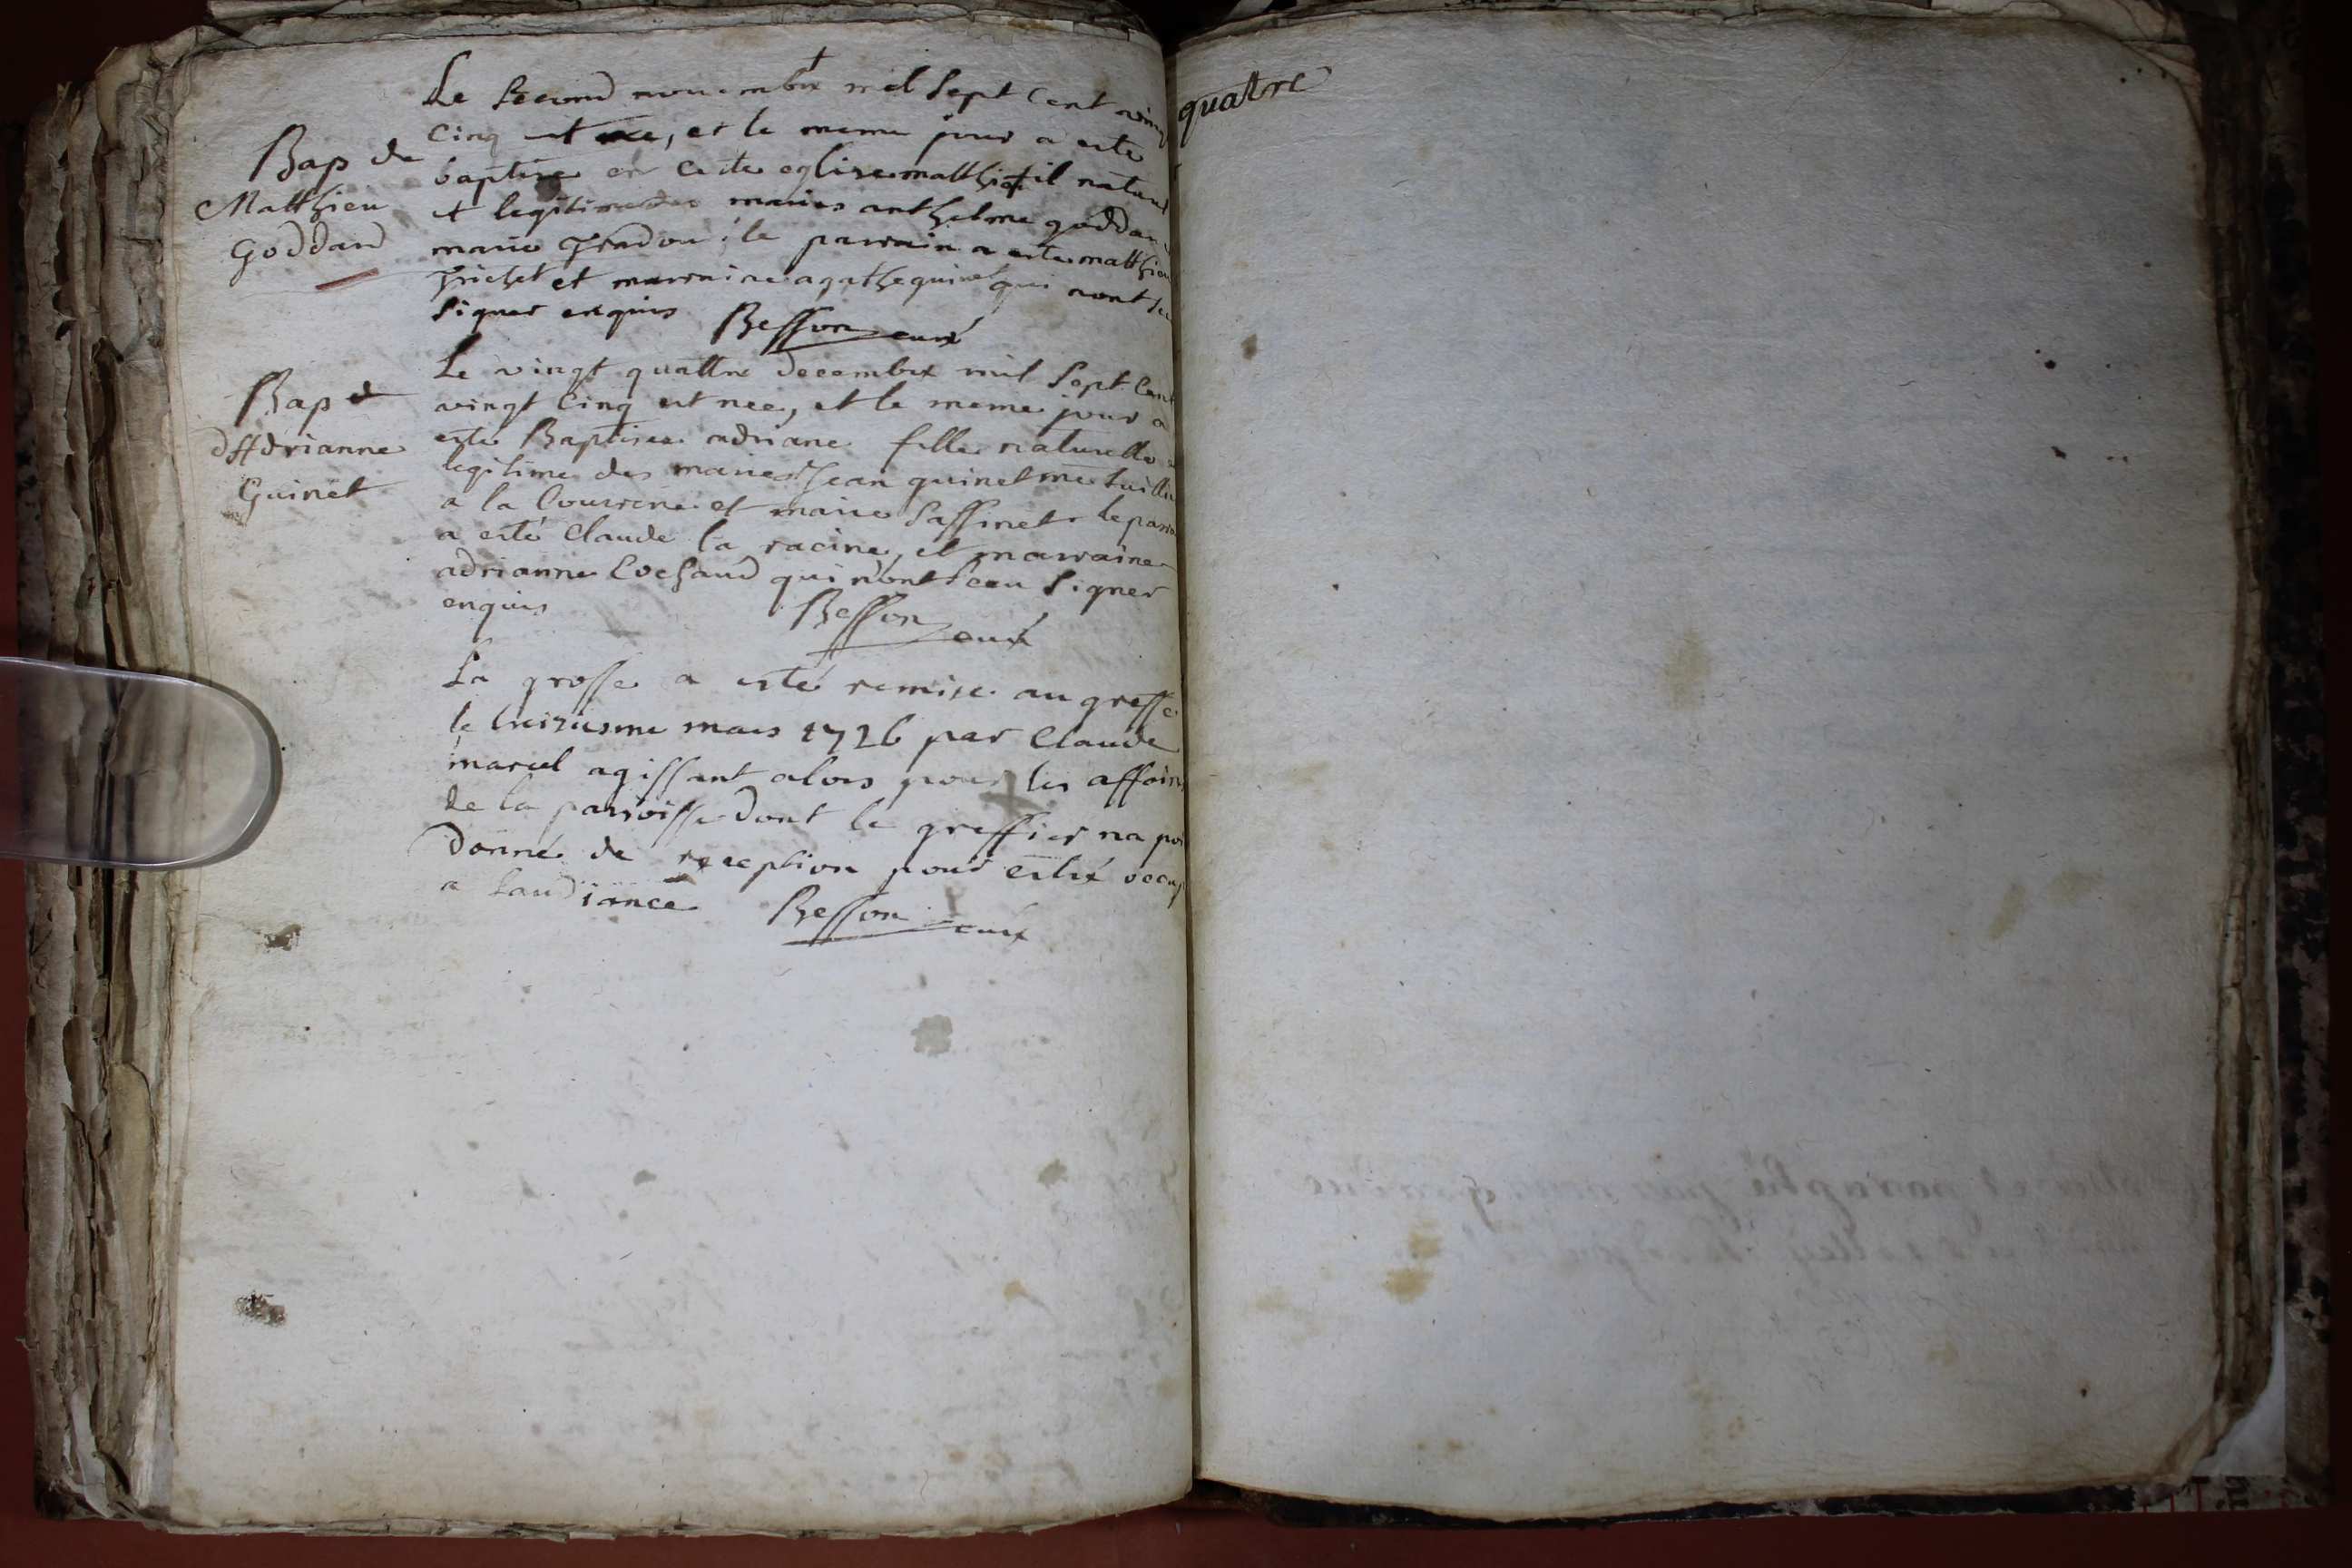 Le second novembre mil sept cent ving
Bap de
Matthieu
Goddard
cinq est nee, et le meme jour a este
baptise en cette eglise matthieu fil naturel
et legitime des maries anthelme goddar
marie Gradou; le parrain a este matthieu
Trichet et marraine agathe guinet qui nont sceu
signer enquis Besson curé
Bap de
d'Adrianne
Guinet
Le vingt quattre decembre mil sept cent
vingt cinq est nee, et le meme jour a
esté Baptisee adriane fille naturelle
legitime des maries Jean guinet me tuillie
a la Courrene et marie Saffinet le parra
a esté Claude la racine, et marraine
adrianne Cochaud qui n'ont sceu signer
enquis Besson curé
La grosse a esté remise au greffe
le huiziesme mars 1726 par Claude
marcel agissant alors pour les affaires
de la parroisse dont le greffier na poi
donné de reception pour estre occup
a laudiance Besson curé
quatre